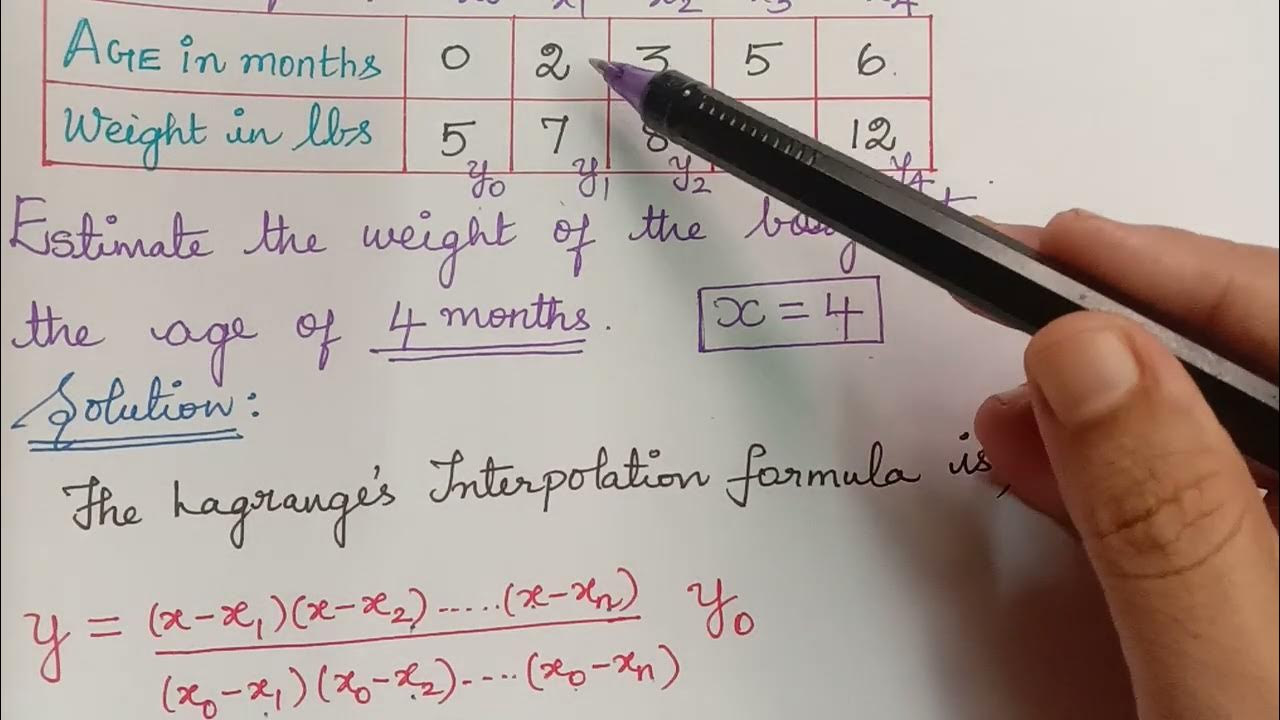 x₁ x₂ x₃ x₄
AGE in months 0 2 3 5 6
Weight in lbs 5 7 8 12
y₀ y₁ y₂ y₄
Estimate the weight of the
the age of 4 months. x = 4
Solution:
The Lagrange's Interpolation formula is,
y = (x-x₁)(x-x₂).....(x-xₙ) y₀
(x₀-x₁)(x₀-x₂)....(x₀-xₙ)